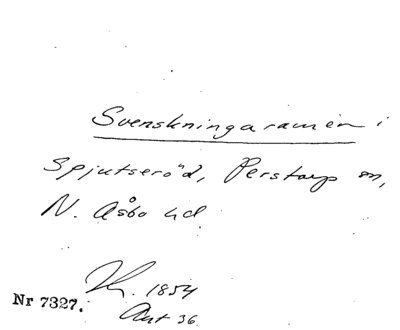 Svenskningaramen i
Spjutseröd, Perstorp sn,
N. Åsbo hd
1854
Nr 7327.
Ant 36